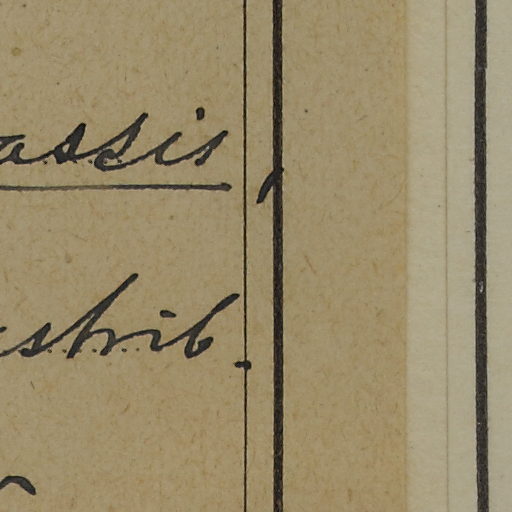 assis,
strib.